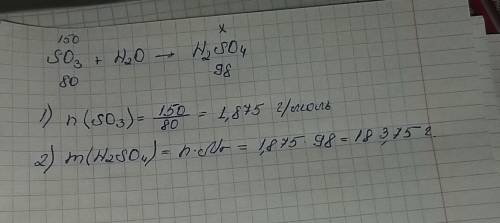 150 x
SO₃ + H₂O → H₂SO₄
80 98
1) n(SO₃) = 150/80 = 1,875 г/моль
2) m(H₂SO₄) = n·Mr = 1,875 · 98 = 183,75 г.